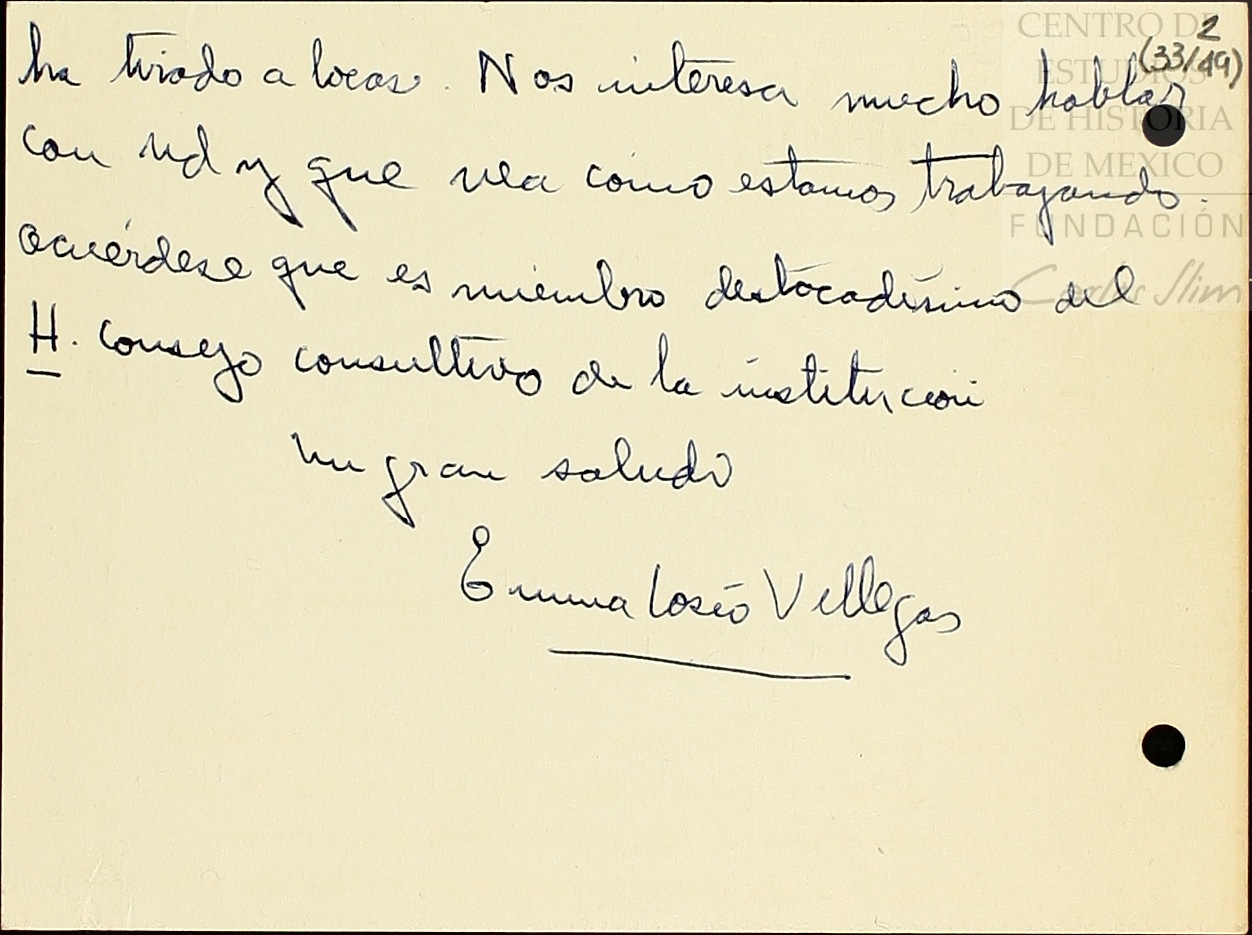 CENTRO DE
ESTUDIOS
DE HISTORIA
DE MEXICO
FUNDACIÓN
Carlos Slim
2
(33/49)
ha tirado a locas. Nos interesa mucho hablar
con Ud y que vea como estamos trabajando.
acuérdese que es miembro destacadísimo del
H. Consejo consultivo de la institución
un gran saludo
Emma Cosío Villegas